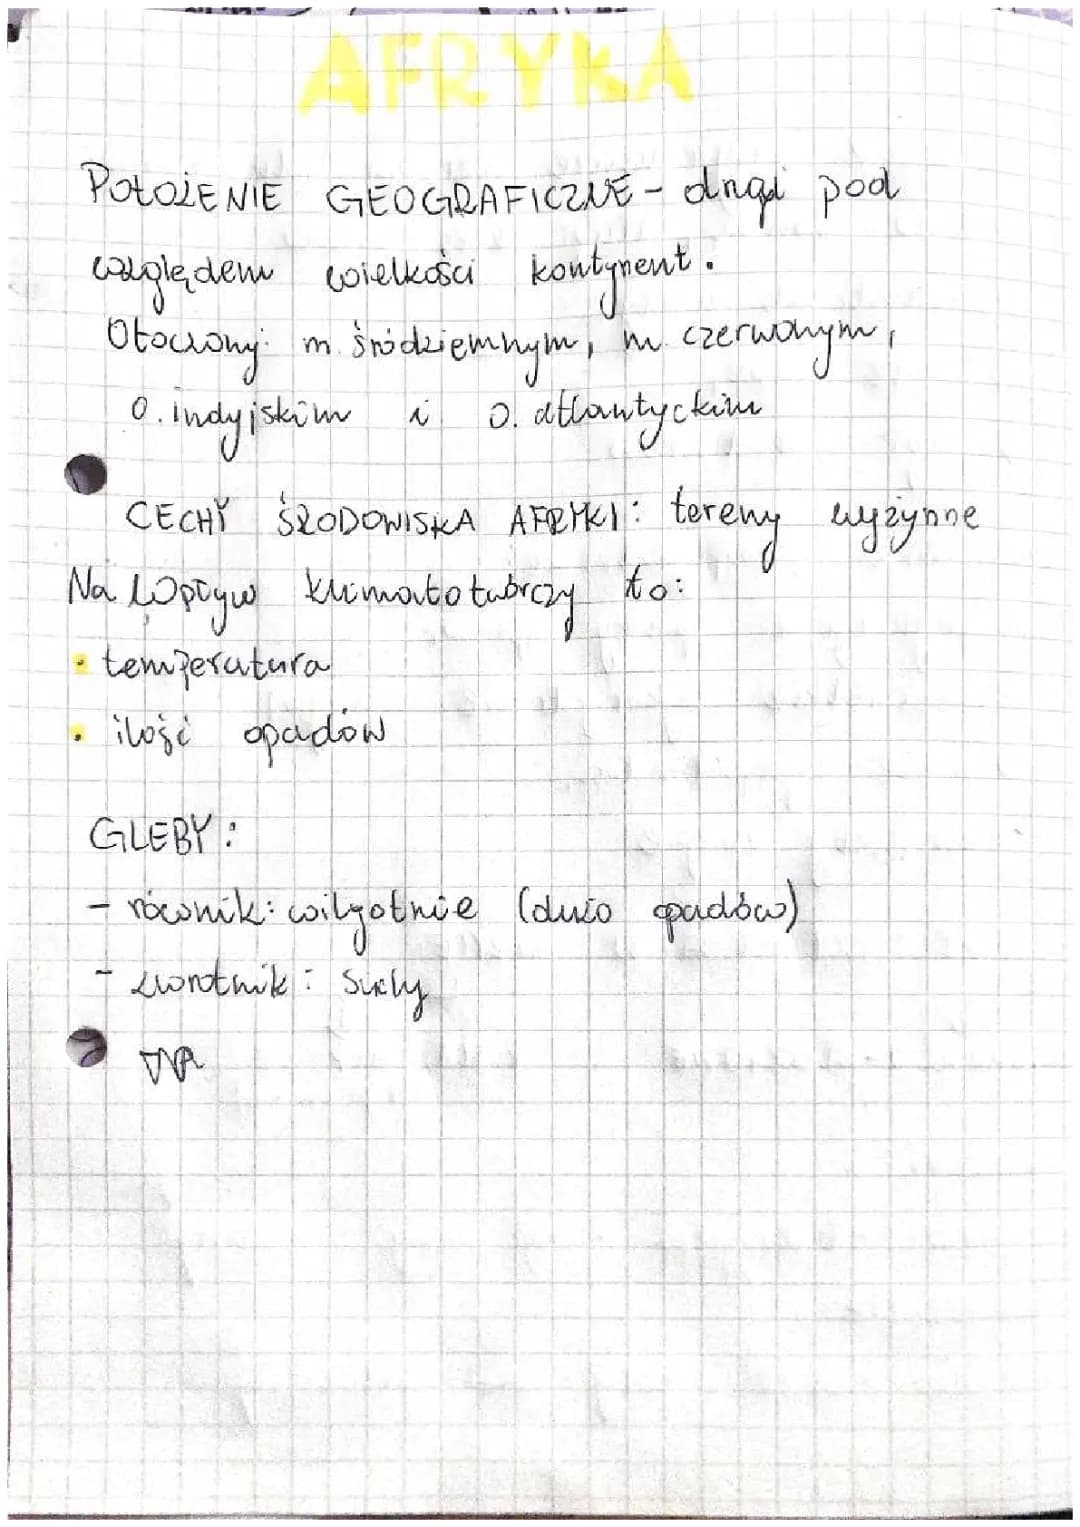 AFRYKA
POŁOŻENIE GEOGRAFICZNE - drugi pod
względem wielkości kontynent.
Otoczony: m. śródziemnym, m. czerwonym,
O. indyjskim i O. atlantyckim
CECHY ŚRODOWISKA AFRYKI: tereny wyżynne
Na wpływ klimatotwórczy to:
• temperatura
• ilość opadów
GLEBY:
- równik: wilgotnie (dużo opadów)
- zwrotnik: suchy